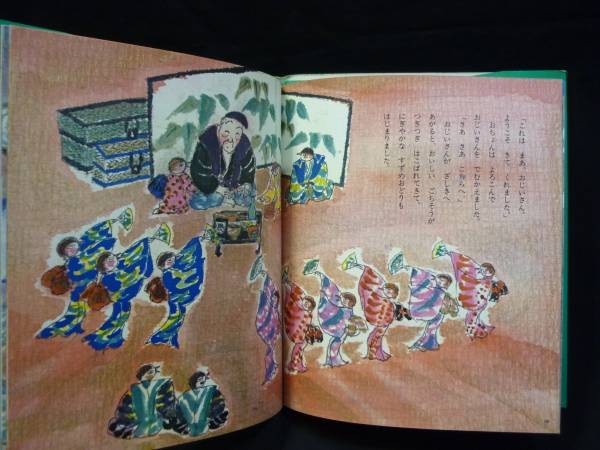 「これは　まあ、おじいさん、
ようこそ　きて　くれました」
おちょんは　よろこんで
おじいさんを　でむかえました。
「さあ　さあ、こちらへ」
おじいさんが　ざしきへ
あがると、おいしい　ごちそうが
つぎつぎ　はこばれてきて、
にぎやかな　すずめおどりも
はじまりました。